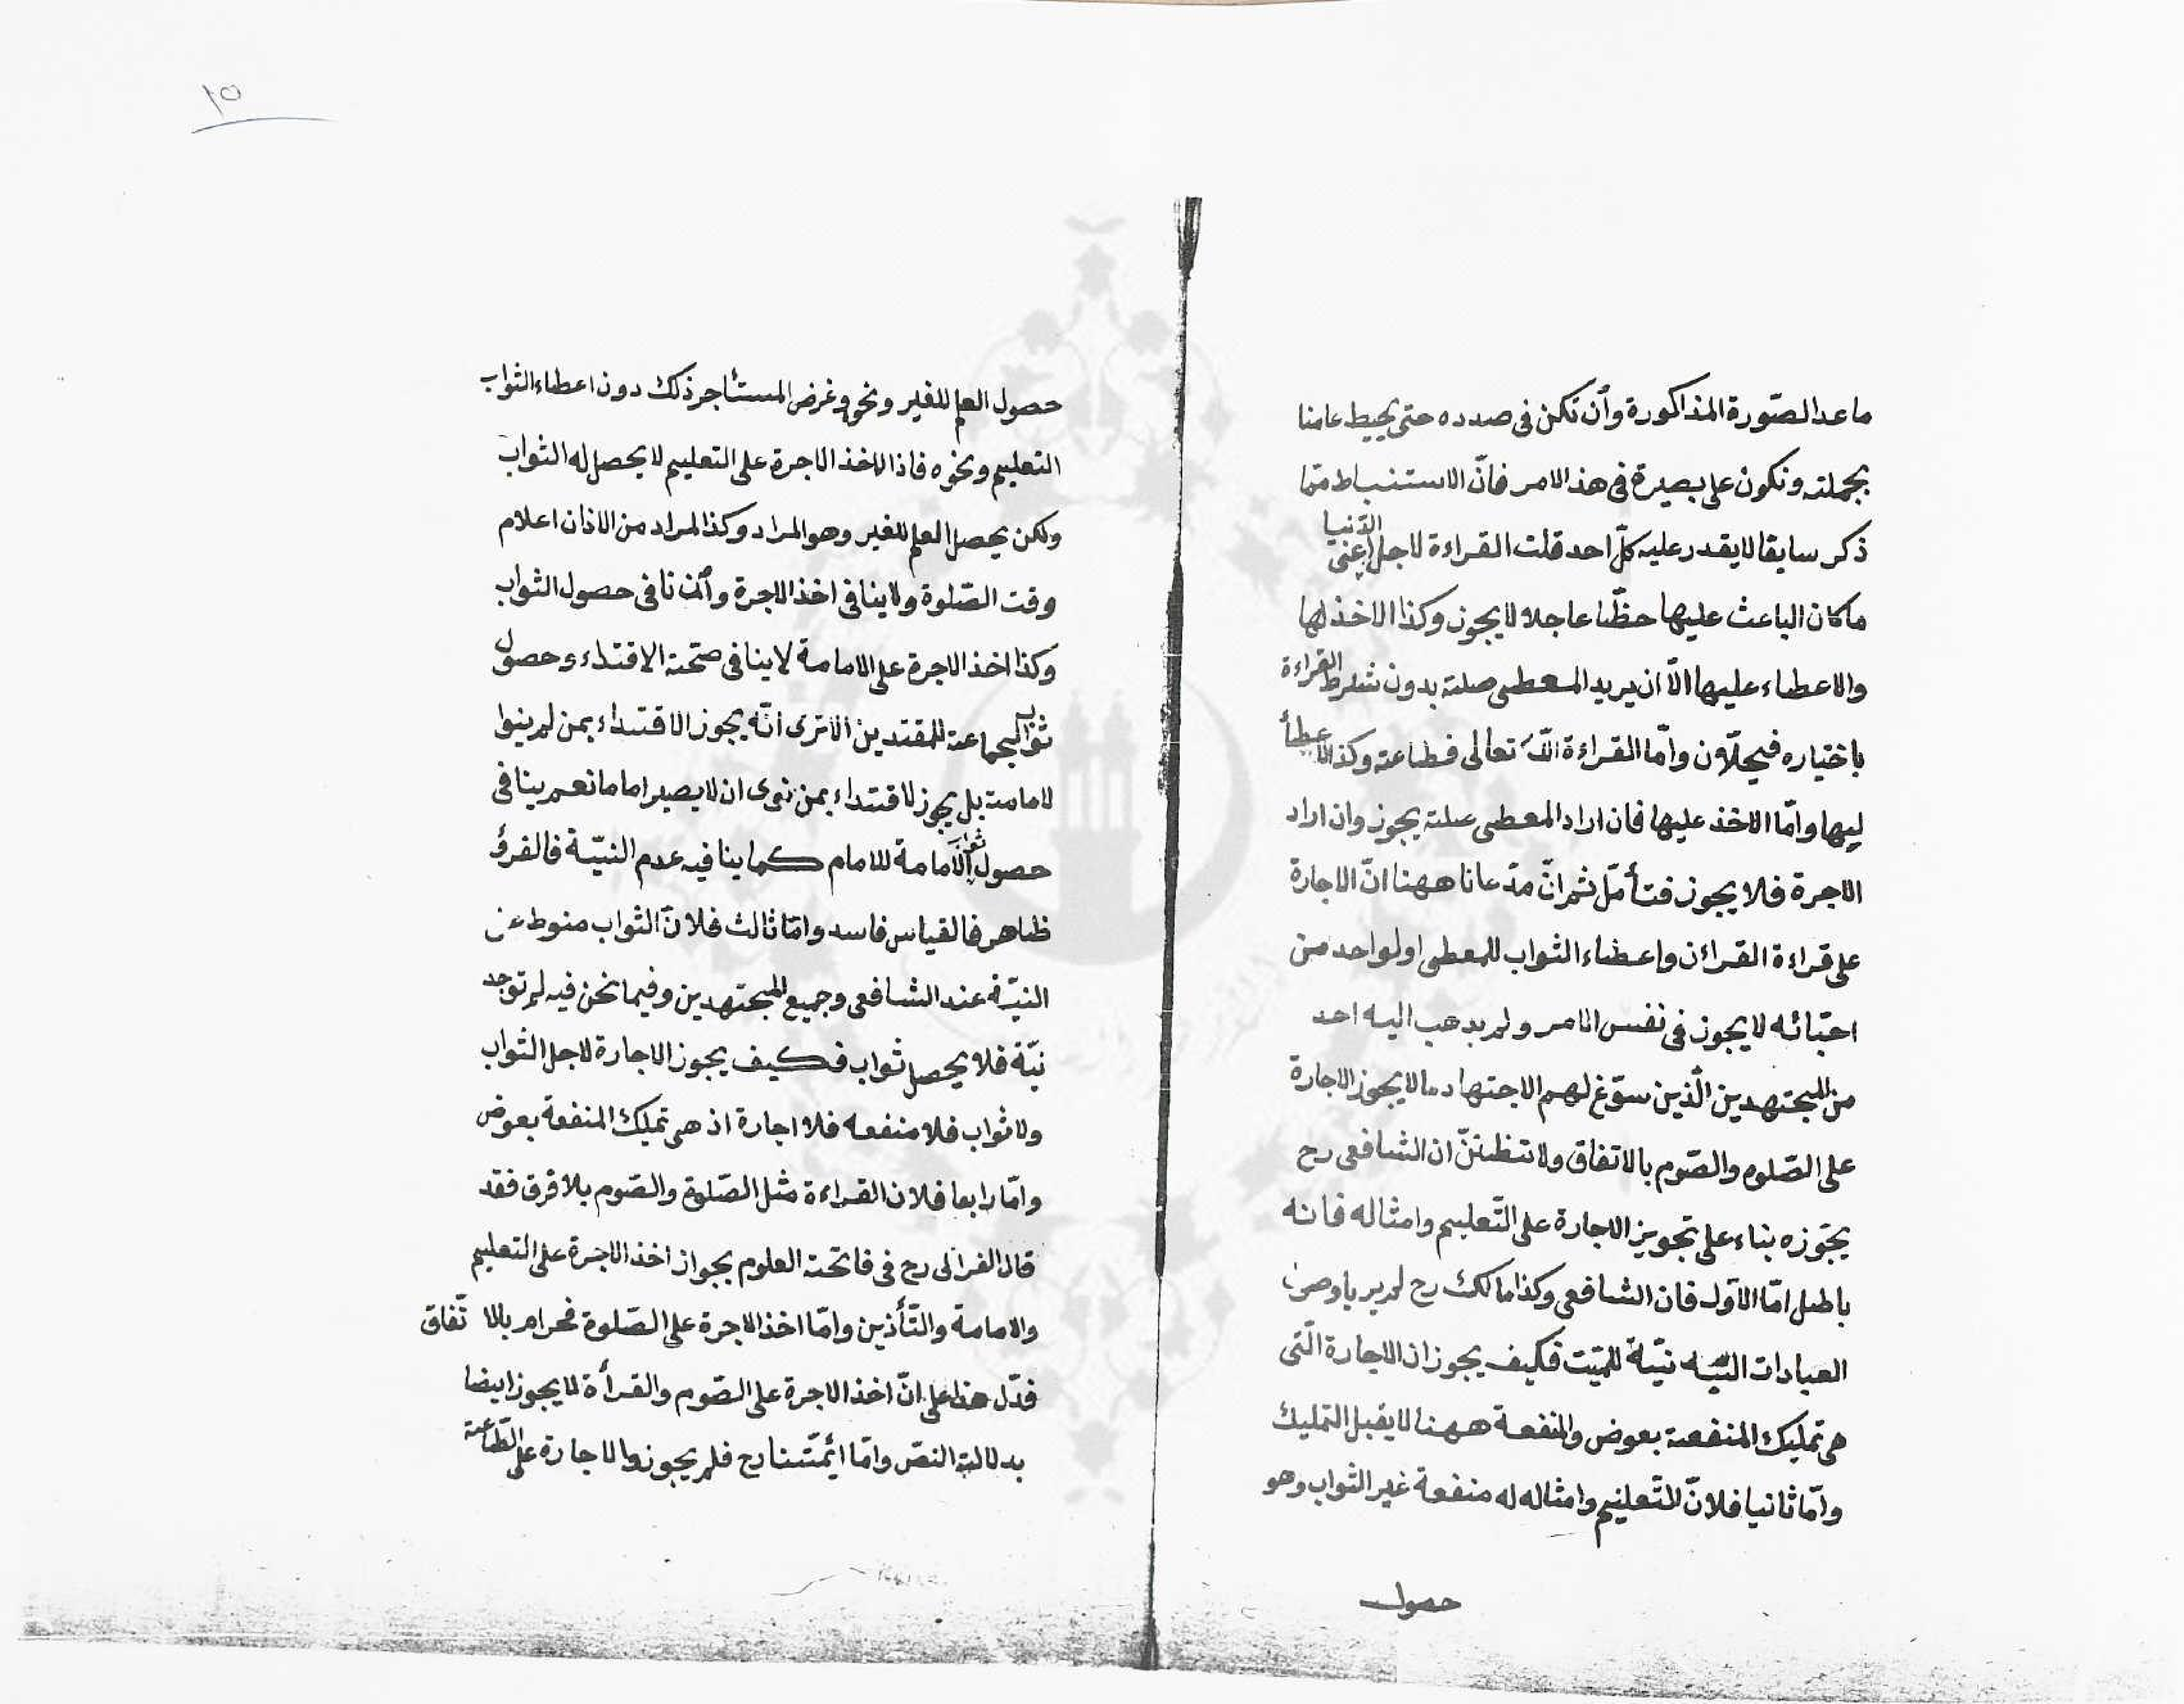 ما عدا الصّورة المذاكورة وأن تكن في صدده حتى يحيط عامنا
بجملته ونكون على بصيرة في هذا الامر فانّ الاستنباط ممّا
ذكر سايقا لا يقدر عليه كلّ احد قلت القراءة لاجل الدّنيا اعنى
ما كان الباعث عليها حظّا عاجلا لا يجوز وكذا الاخذ لها
والاعطاء عليها الّا ان يريد المعطى صلته بدون شرط القراءة
باختياره فيحلّان وامّا القراءة للّه تعالى فطاعة وكذا الاعطأ
ليها وامّا الاخذ عليها فان اراد المعطى صلته يجوز وان اراد
الاجرة فلا يجوز فتأمّل ثم انّ مدّعانا ههنا انّ الاجارة
على قراءة القرائن واعطاء الثواب للمعطى اولواحد من
احبّائه لا يجوز في نفس الامر ولم يدهب اليه احد
من المجتهدين الّذين سوّغ لهم الاجتهاد ما لا يجوز الاجارة
على الصّلوه والصّوم بالاتفاق ولا تظننّ ان الشافعى رح
يجّوزه بناء على تجويز الاجارة على التّعليم وامثاله فانه
باطل امّا الاوّل فان الشافعى وكذا مالك رح لم ير
العبادات نيّة للميّت فكيف يجوز اذ الاجارة الّتى
هى تمليك المنفعة بعوض والمنفعة ههنا لا يقبل التمليك
وامّا ثانيا فلانّ للتّعليم وامثاله له منفعة غير الثواب وهو
حصول
١٥
حصول العلم للغير ونحوه وغرض المستأجر ذلك دون اعطاء الثواب
التعليم ونخوه فاذا الاخذ الاجرة على التعليم لا يحصل له الثواب
ولكن يحصل العلم للغير وهو المراد وكذا المراد من الاذان اعلام
وقت الصّلوة ولا ينافى اخذ الاجرة وأن نافى حصول الثواب
وكذا اخذ الاجرة على الامامة لا ينافى صحّة الاقتداء وحصول
ثواب الجماعة للمقتدين الا ترى انّه يجوز الاقتداء بمن لم ينوا
لامامة بل يجوز لاقتداء بمن نوى ان لا يصير اماما نعم ينافى
حصول ثواب الامامة للامام كما ينافيه عدم النيّة فالفرق
ظاهر فالقياس فاسد وامّا ثالث فلانّ الثواب منوط عن
النيّة عند الشافعى وجميع المجتهدين وفيما نحن فيه لم توجد
نيّة فلا يحصل ثواب فكيف يجوز الاجارة لاجل الثواب
ولا ثواب فلا منفعه فلا اجارة اذ هى تمليك المنفعة بعوض
وامّا رابعا فلان القراءة مثل الصّلوة والصّوم بلا فرق فقد
قال الغزالى رح في فاتحة العلوم بجواز اخذ الاجرة على التعليم
والامامة والتّأذين وامّا اخذ الاجرة على الصّلوة فحرام بالا تّفاق
فدّل هذا على انّ اخذ الاجرة على الصّوم والقرأة لا يجوز ايضا
بدلالة النصّ وامّا أئمّتنا رح فلم يجوزوا الاجارة على الطّاعة